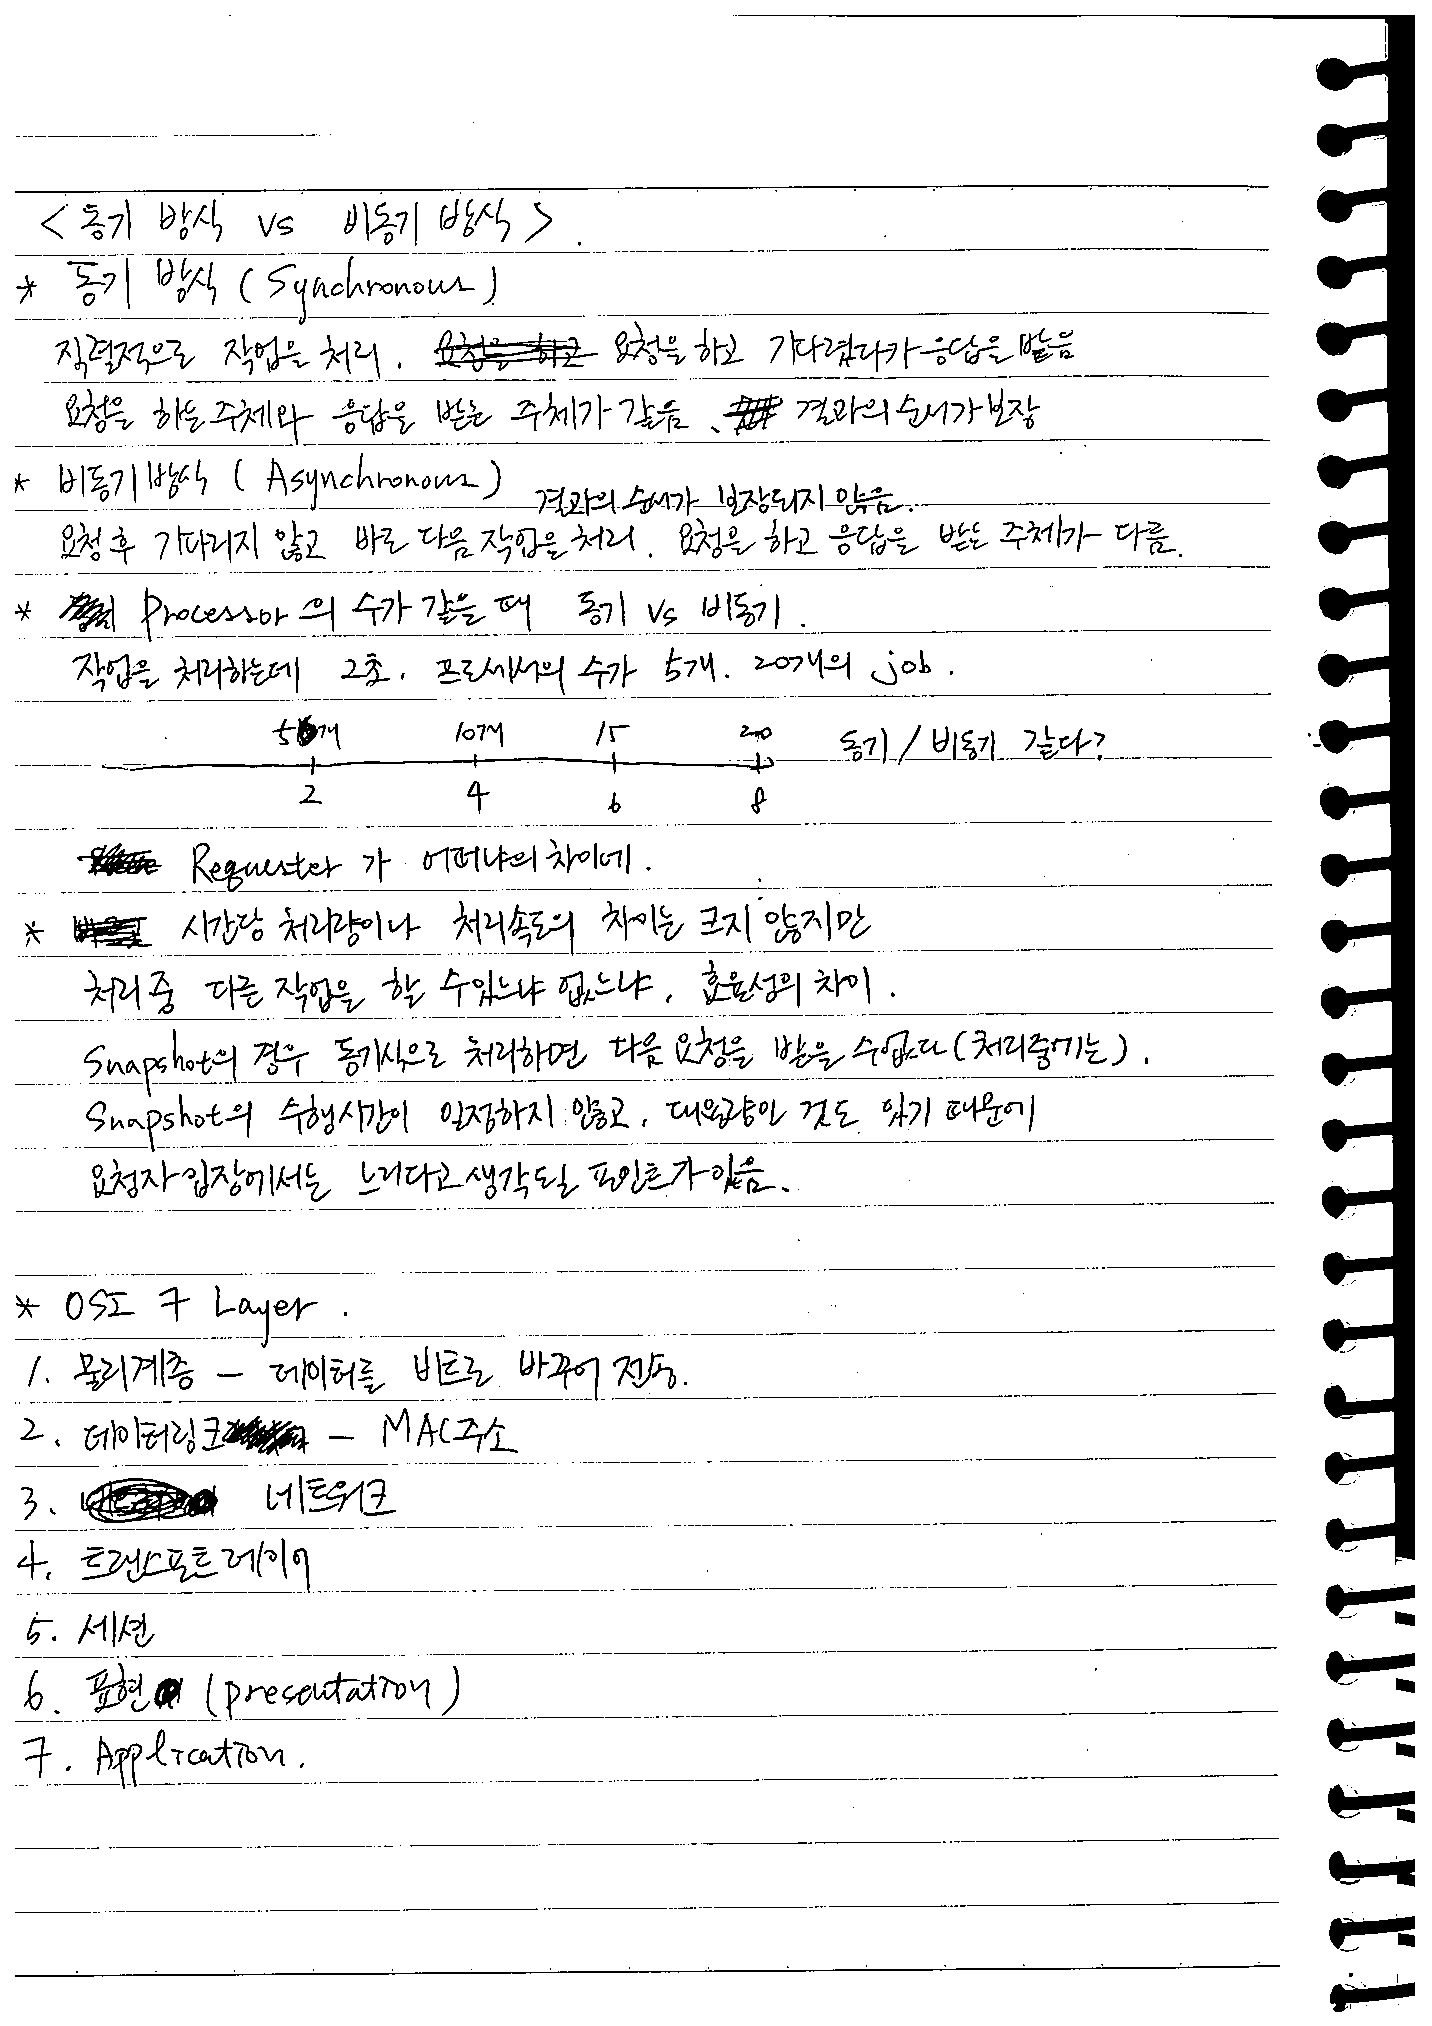 < 동기 방식 vs 비동기 방식 > .
* 동기 방식 ( Synchronous )
직렬적으로 작업을 처리. 요청을 하고 요청을 하고 기다렸다가 응답을 받음
요청을 하는 주체와 응답을 받는 주체가 같음. 결과의 순서가 보장
* 비동기 방식 ( Asynchronous ) 결과의 순서가 보장되지 않음.
요청 후 기다리지 않고 바로 다음 작업을 처리. 요청을 하고 응답을 받는 주체가 다름.
* Processor의 수가 같을 때 동기 vs 비동기.
작업을 처리하는데 2초. 프로세서의 수가 5개. 20개의 job.
5개 10개 15 20 동기 / 비동기 같다?
2 4 6 8
Requester 가 어떠냐의 차이네.
* 시간당 처리량이나 처리속도의 차이는 크지 않지만
처리 중 다른 작업을 할 수 있느냐 없느냐, 효율성의 차이.
Snapshot의 경우 동기식으로 처리하면 다음 요청을 받을 수 없다 (처리중에는).
Snapshot의 수행시간이 일정하지 않고, 대용량인 것도 있기 때문에
요청자 입장에서는 느리다고 생각될 포인트가 있음.
* OSI 7 Layer .
1. 물리계층 - 데이터를 비트로 바꾸어 전송.
2. 데이터링크 - MAC주소
3. 네트워크
4. 트랜스포트 레이어
5. 세션
6. 표현 (presentation)
7. Application.